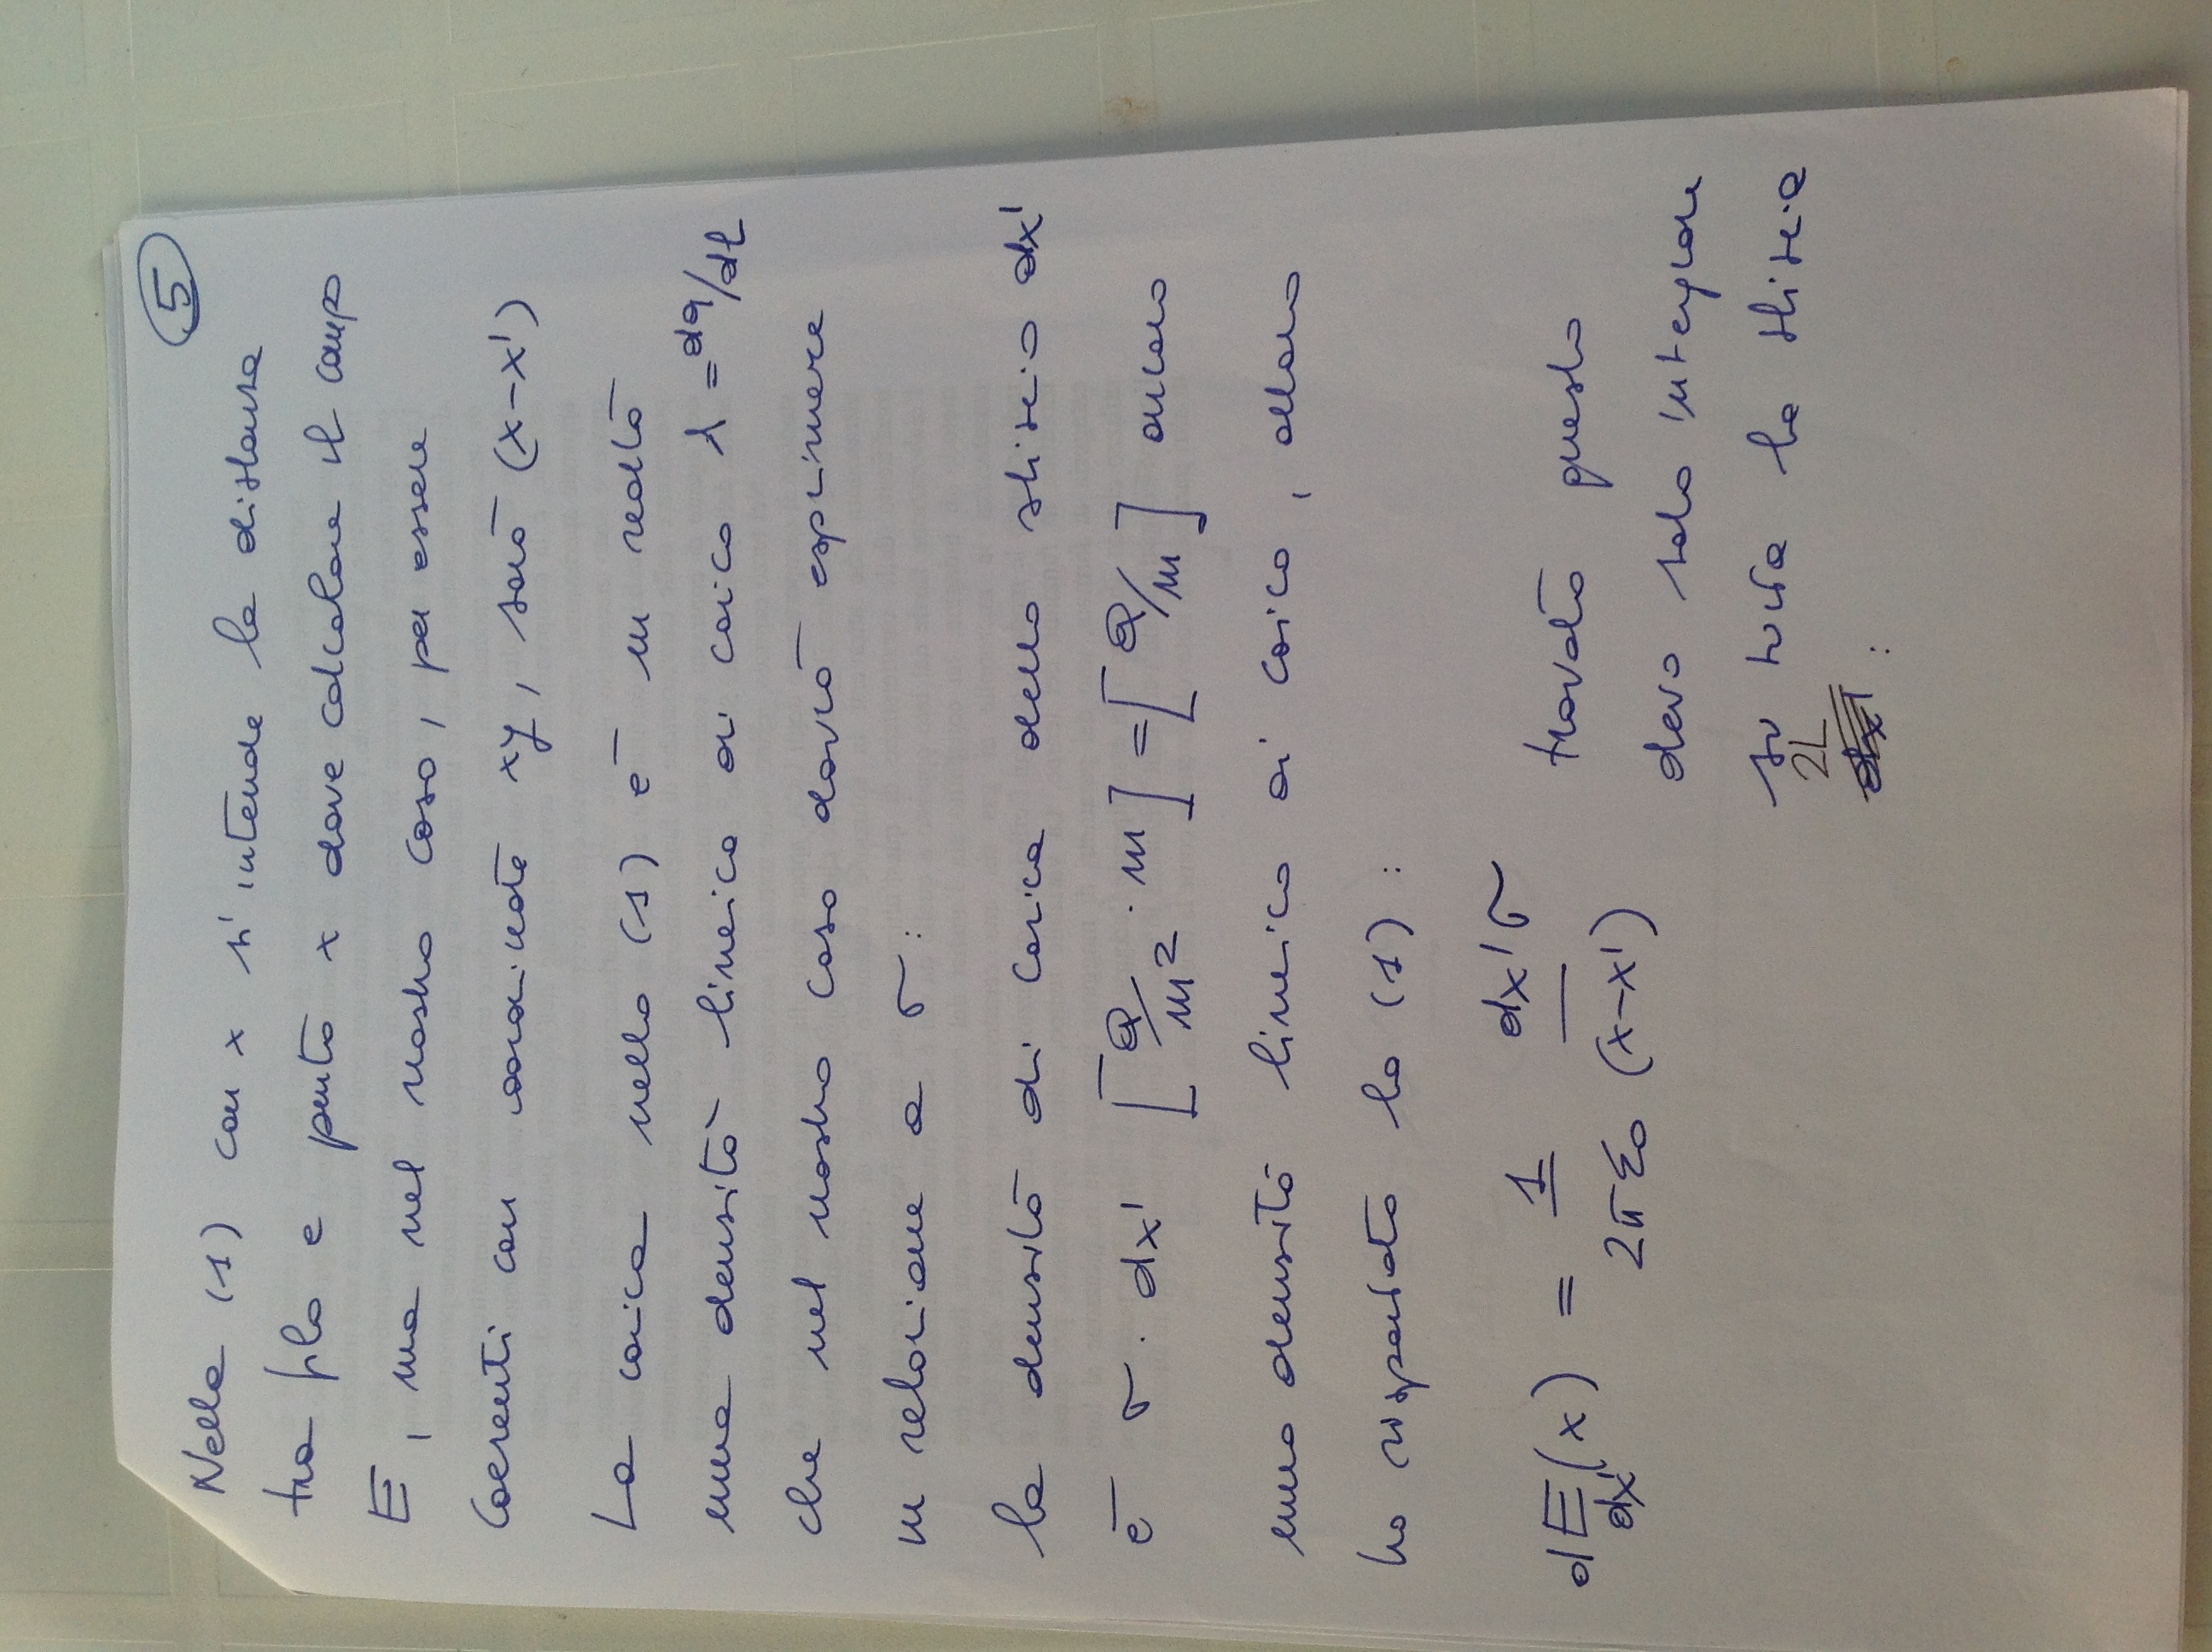 5
Nella (1) con x si intende la distanza
tra filo e punto x dove calcolare il campo
E, ma nel nostro caso, per essere
coerenti con coordinate xy, sarà (x-x')
La carica nella (1) è in realtà
una densità lineica di carica λ = dq/dl
che nel nostro caso dovrò esprimere
in relazione a σ:
la densità di carica della striscia dx'
è σ · dx' [Q/m² · m] = [Q/m] ancora
una densità lineica di carica, allora
ho la (1):
dE(x) = 1 dx'σ trovato questo
dx' 2πε₀ (x-x')
devo solo integrare
su tutta la striscia
2L
dx' :